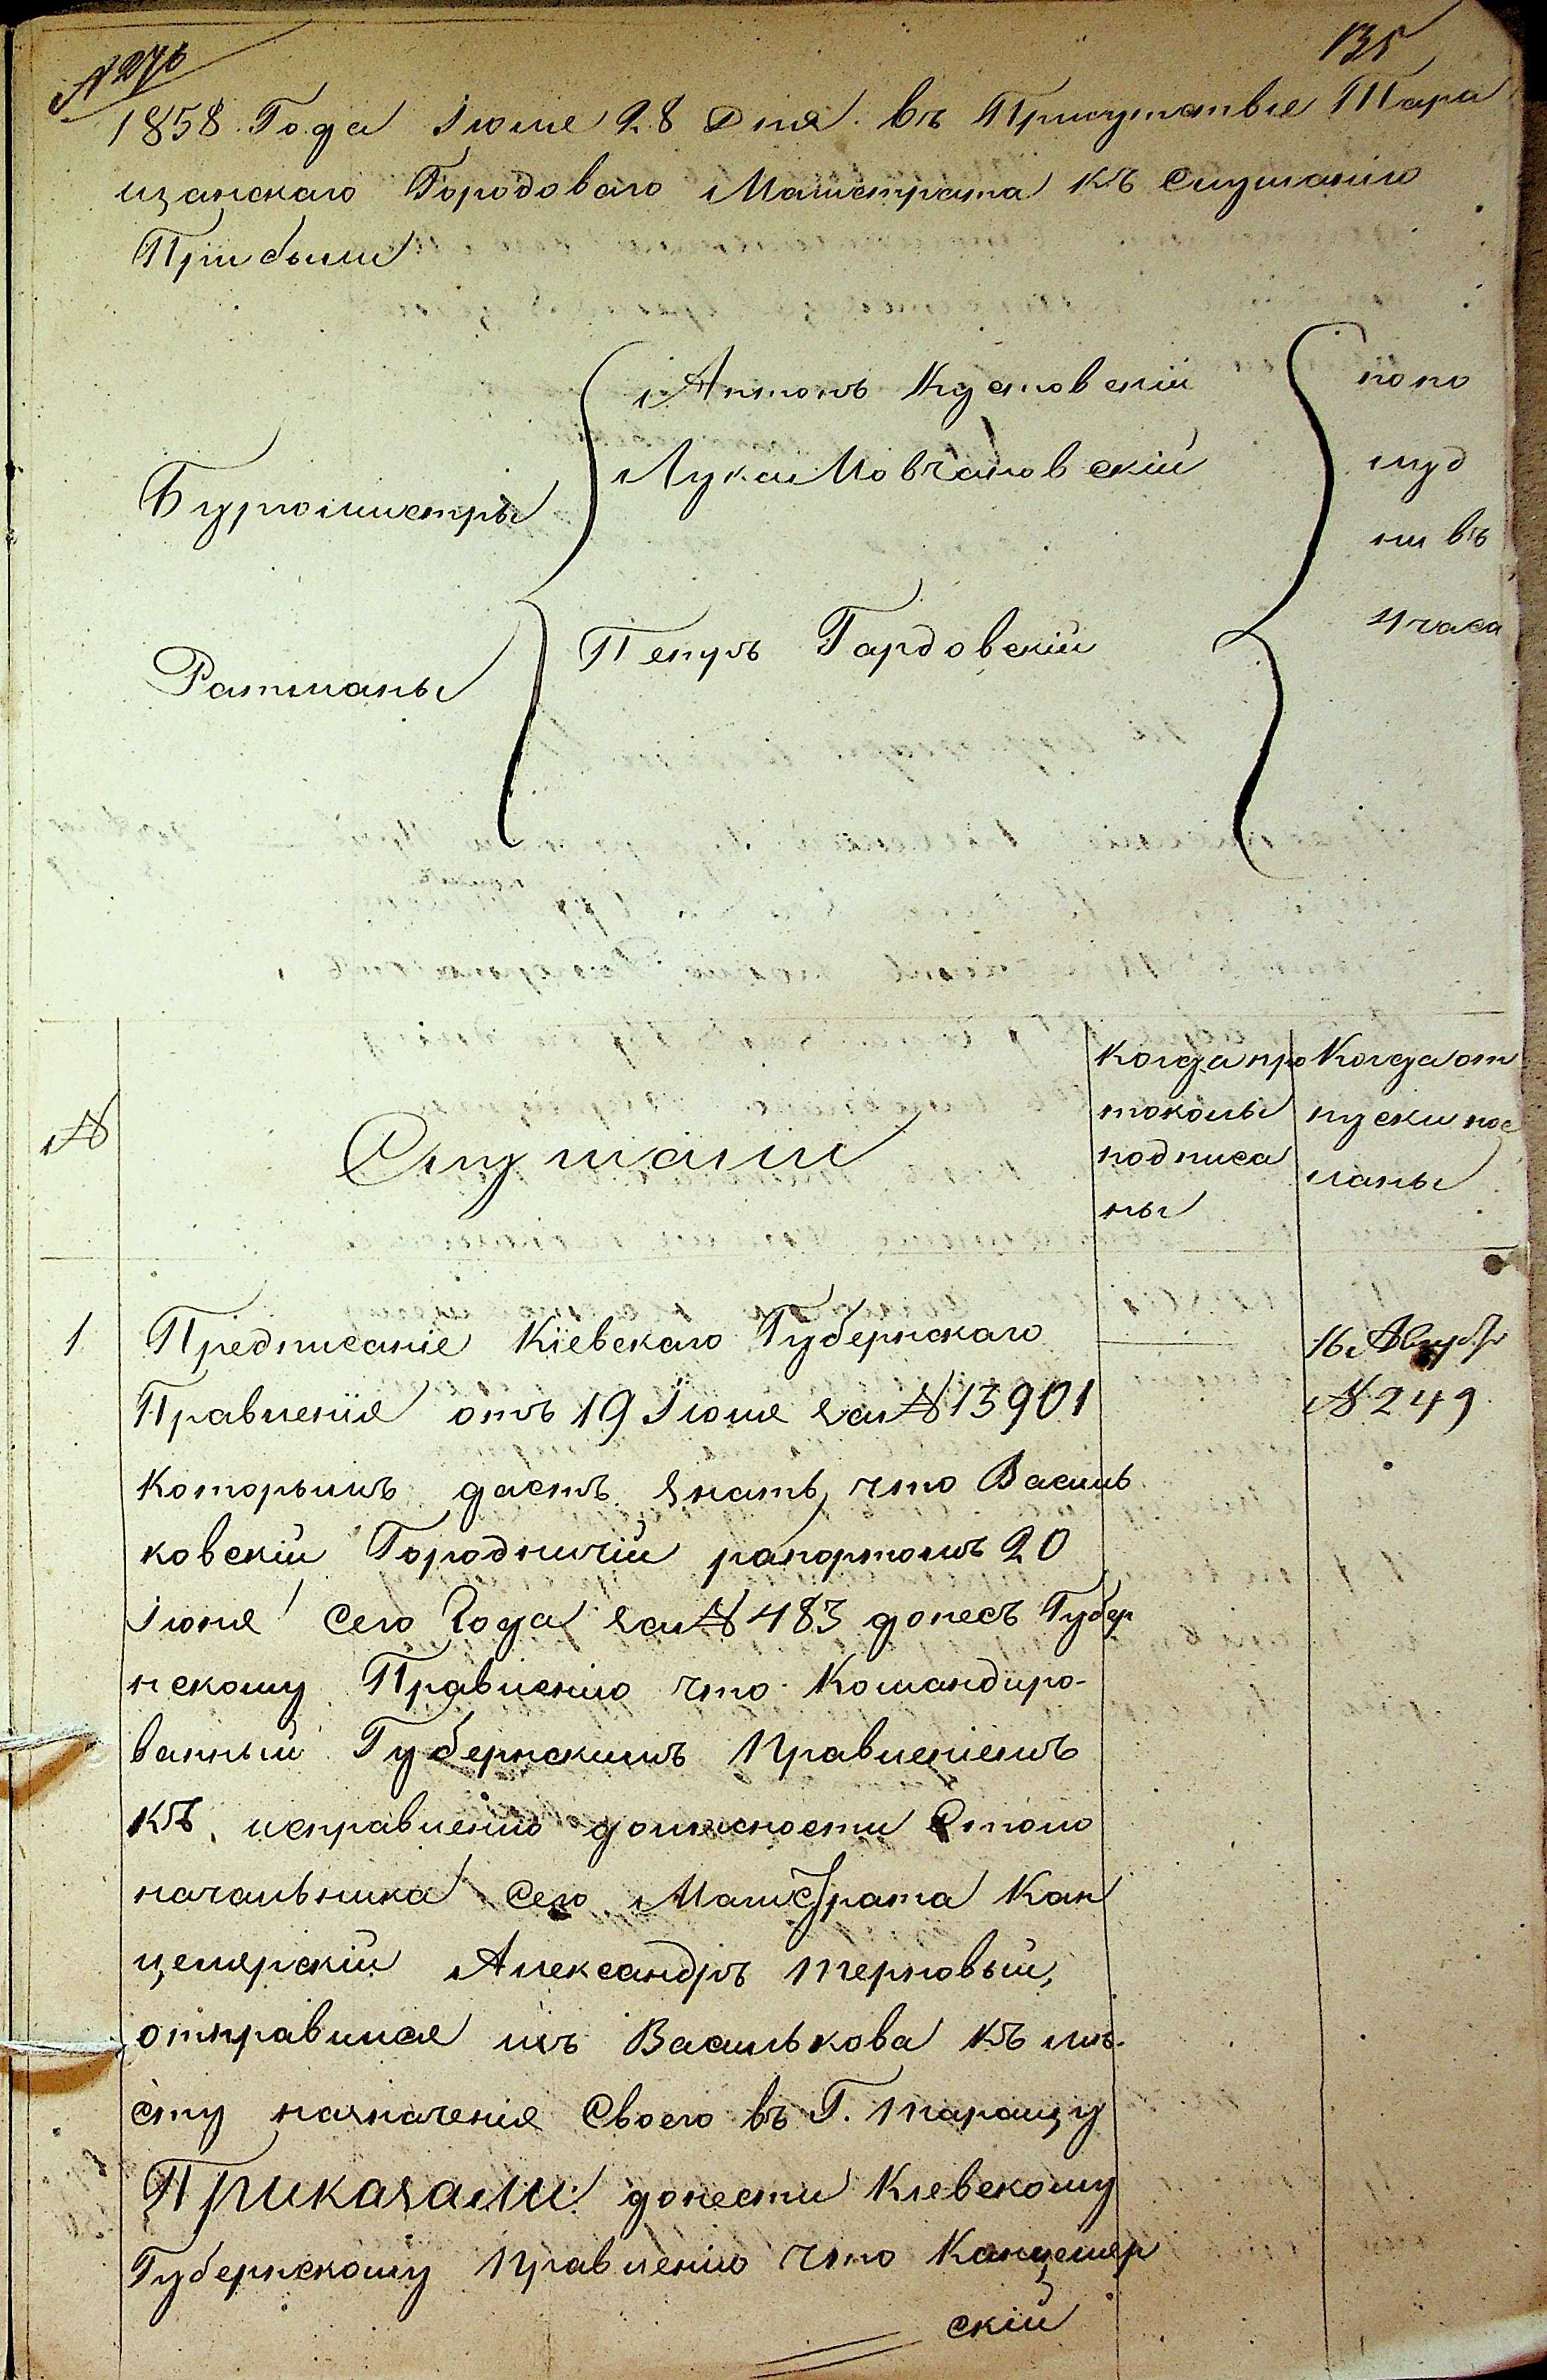 № 276
135
1858 Года Июля 28 Дня въ Присутствіе Тара
щанскаго Городоваго Магистрата къ слушанію
Прибыли
Бургомистры
Антонъ Кустовскій
Лука Мовчановскій
Ратманы
Петръ Гардовскій
попо
луд
ни въ
4 часа
№
Слушали
Когда про
токолы
подписа
ны
Когда от
пуски пос
ланы
1
Предписаніе Кіевскаго Губернскаго
Правленія отъ 19 Іюля за № 13901
которымъ даетъ знать, что Василь
ковскій Городничій рапортомъ 20
Іюня сего года за № 483 донесъ Губер
нскому Правленію что Командиро-
ванный Губернскимъ Правленіемъ
къ исправленію должности Столо
начальника Сего Магистрата Кан
целярскій Александръ Терновый,
отправился изъ Василькова къ мѣ-
сту назначенія Своего въ Г. Таращу
Приказали: донести Кіевскому
Губернскому Правленію что Канцеляр
скій
16 Августа
№ 249